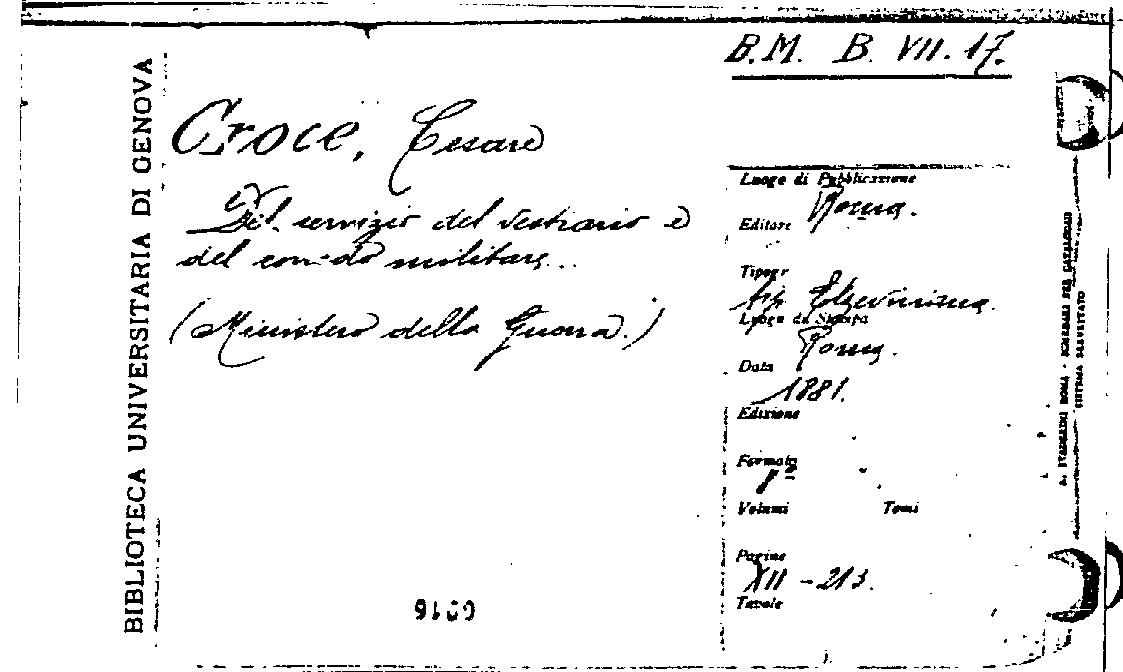 B.M. B. VII. 17.
BIBLIOTECA UNIVERSITARIA DI GENOVA
Croce, Cesare
Del servizio del vestiario e
del corredo militare...
(Ministero della Guerra.)
Luogo di Pubblicazione
Roma.
Editore
Tipogr
tip. Elzeviriana.
Luogo di Stampa
Roma.
Data
1881.
Edizione
Formato
8º
Volumi Tomi
Pagine
XII - 213.
Tavole
SISTEMA BREVETTATO